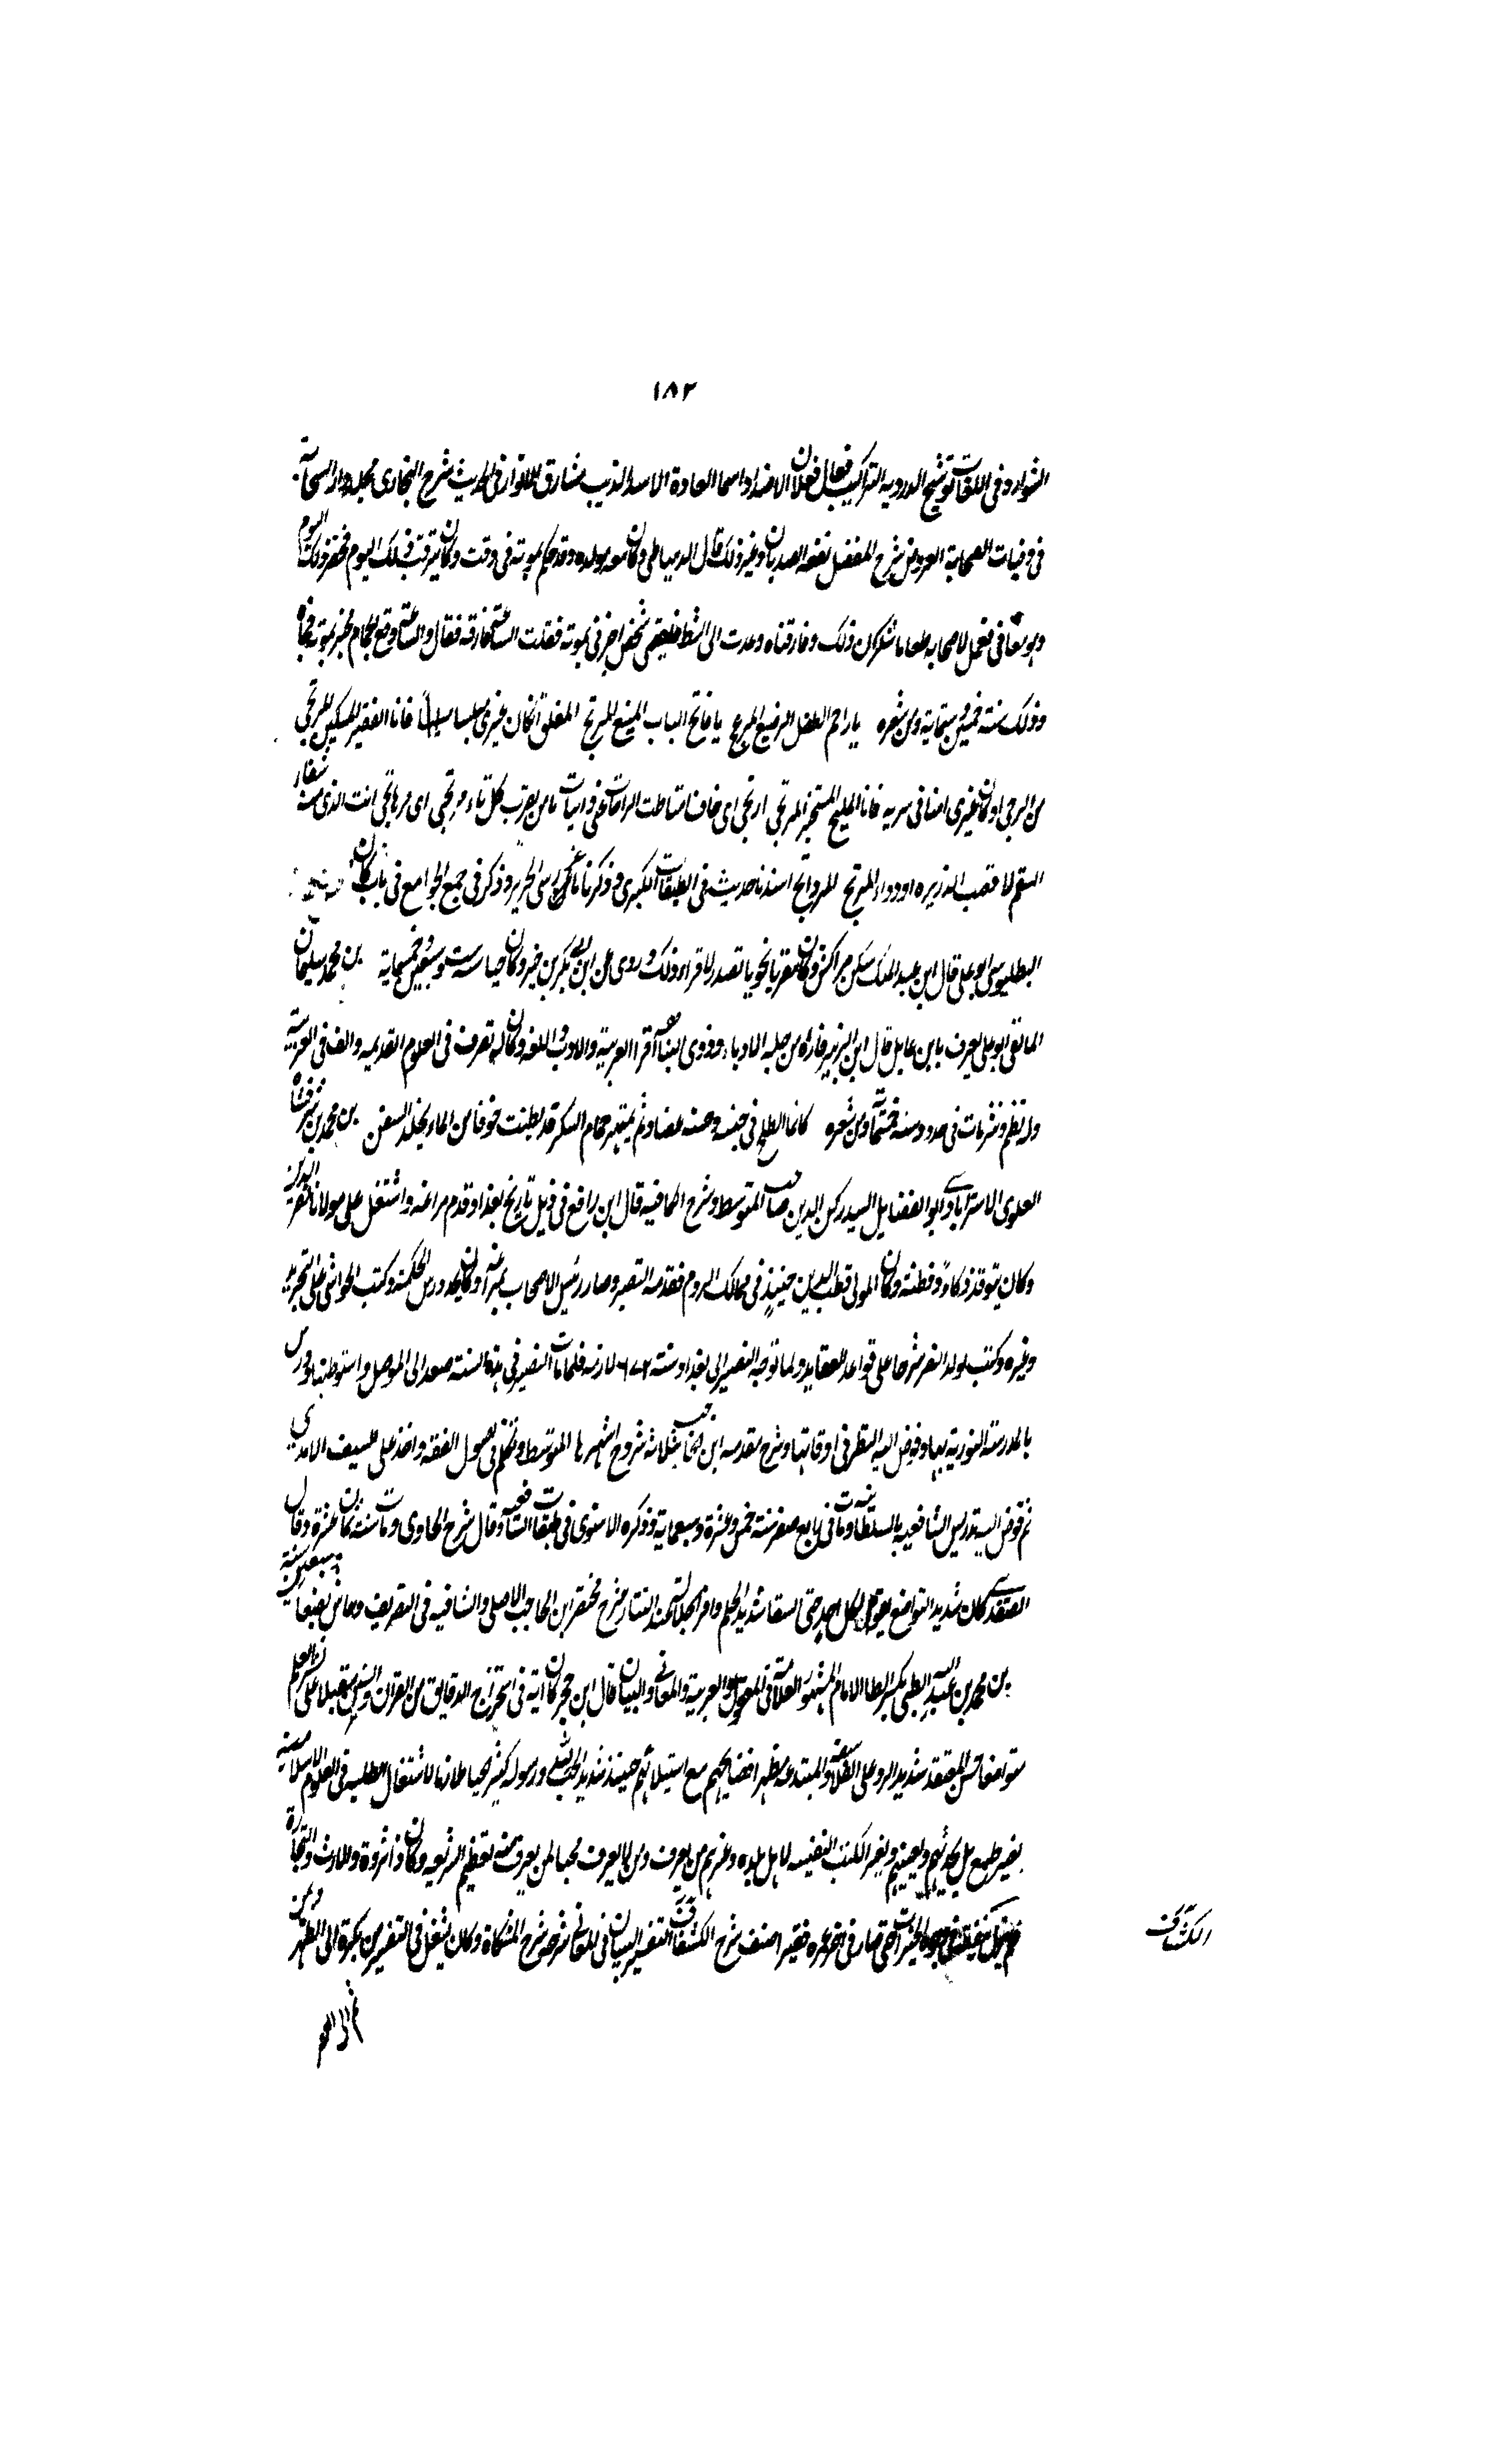 ١٨٢
الشوارد في اللغات توشيح الدريديه التراكيب فعال فعلان الاضداد اسما العادة الاسد الذيب مشارق الانوار في الحديث شرح البخاري مجلد در السحابة
في وفيات الصحابة العروض شرح المفصل نقعه الصديان وغير ذلك قال الدمياطي وكان معه مولده وقد حكم بموته في وقت وكان يترقب ذلك اليوم فحضر ذلك اليوم
وهو معافى فعمل لاصحابه طعاما شكران ذلك وفارقناه وعدت الى الشط فلقيني شخص اخبرني بموته فقلت الساعة فارقته فقال والساعة وقع الحمام بخبر بموته فجاة
وذلك سنة خمسين وستماية ومن شعره يا راحم الطفل الرضيع المزعج يا فاتح الباب المنيع المرتج المغلق ان كان غيري مبلسا فانا الفقير المسكين المرتجى
من الرجى او كان غيري امنا في سربه فانا المليح المستجير المرتجي ارتجى اي خاف يا من يقرب كل ناء مرتجى انت الذي منه شفاء
السقم لا قصب الذريره او دواء المرتج اسندنا حديثه في الطبقات الكبرى وذكر في جمع الجوامع في باب كان
البطليوسي ابو علي قال ابن عبد الملك سكن مراكش وكان مقريا نحويا تصدر لاقراء ذلك وروى عن ابن ابي بكر بن خير وكان حيا سنة ست وسبعين وخمسماية بن محمد بن سليمان
المالقي ابو علي يعرف بابن عايل قال ابن الزبير فاراه من جلة الادباء وذوي النباهة اقرا العربية والادب واللغه وكان له تصرف في العلوم القديمه والف في العربية
وله نظم ونثر مات في حدود سنه ستماية ومن شعره كانما الطلع في جنسه وحسنه بن محمد بن شرفشاه
العلوي الاستراباذي ابو الفضايل السيد ركن الدين صاحب المتوسط وشرح الكافيه قال ابن رافع في ذيل تاريخ بغداد قدم مراغه واشتغل على مولانا نصير الدين
وكان يتوقد ذكاء وفطنة وكان المولى قطب الدين حينيذ في ممالك الروم فقدمه النصير وصار رئيس الاصحاب بمراغه وكان يجيد درس الحكمة وكتب الحواشي على التجريد
وغيره وكتب لولد النصر شرحا على قواعد العقايد ولما توجه النصير الى بغداد سنة ٦٧٢ لازمه فلما مات النصير في هذه السنة صعد الى الموصل واستوطنها ودرس
بالمدرسة النورية بها وفوض اليه النظر في اوقافها وشرح مقدمه ابن الحاجب بثلاثة شروح اشهرها المتوسط وتكلم في اصول الفقه واخذ على السيف الامدي
ثم فوض اليه تدريس الشافعيه بالسلطانية ومات في رابع عشر صفر سنة خمس عشرة وسبعماية وذكره الاسنوي في طبقات الشافعية وقال شرح الحاوي ومات سنة ثمان عشرة وقال
الصفدي كان شديد التواضع يقوم لكل احد حتى السقا شديد الحلم وافر الجلالة عند التتار شرح مختصر ابن الحاجب الاصلي والشافيه في التصريف وعاش بضعا وسبعين سنة
بن محمد بن عبد الله الطيبي بكسر الطا الامام المشهور العلامة في المعقول والعربية والمعاني والبيان قال ابن حجر كان اية في استخراج الدقايق من القران والسنن مقبلا على نشر العلم
متواضعا حسن المعتقد شديد الرد على الفلاسفة والمبتدعه مظهرا فضايحهم مع استيلائهم حينئذ شديد الحب لله ورسوله كثير الحيا ملازما لاشغال الطلبه في العلوم الاسلامية
بغير طمع بل يجديهم ويعينهم ويعير الكتب النفيسه لاهل بلده وغيرهم من يعرف ومن لا يعرف محبا لمن يعرف منه تعظيم الشريعه وكان ذا ثروة من الارث والتجارة
فلم يزل ينفقه في وجوه الخيرات حتى صار في اخر عمره فقيرا صنف شرح الكشاف التفسير التبيان في المعاني شرحه شرح المشكاة وكان يشغل في التفسير من بكرة الى الظهر ومن
الكشاف
ثم الى العصر